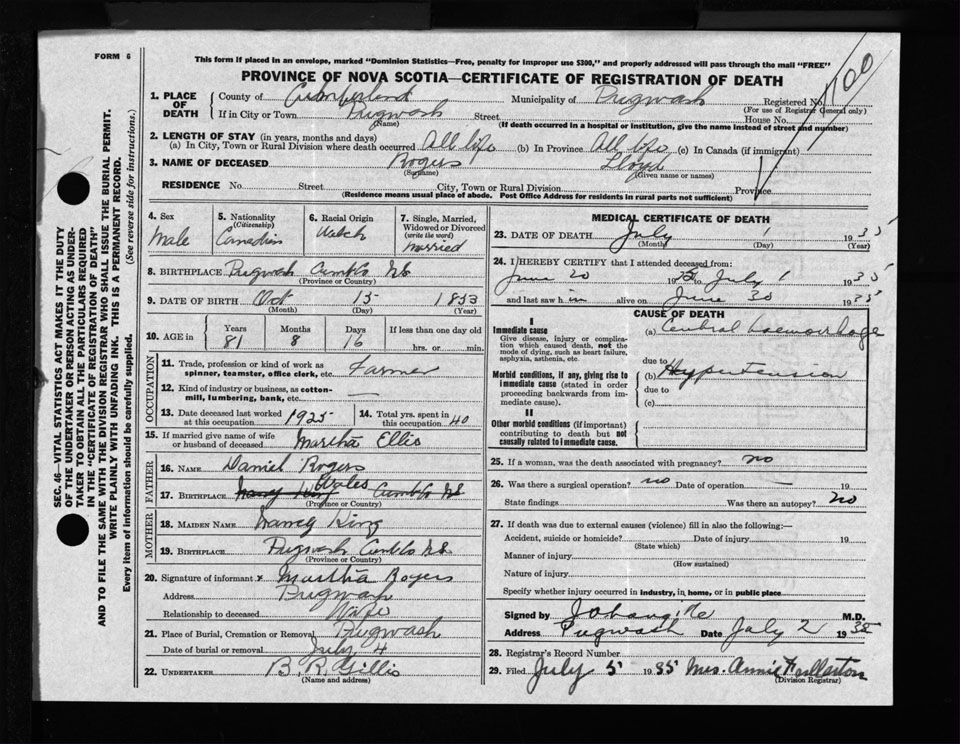 FORM 6
This form if posted in an envelope, marked "Dominion Statistics—Free, penalty for improper use $300," and properly addressed will pass through the mail "FREE"
PROVINCE OF NOVA SCOTIA—CERTIFICATE OF REGISTRATION OF DEATH
100
SEC. 46—VITAL STATISTICS ACT MAKES IT THE DUTY
OF THE UNDERTAKER OR PERSON ACTING AS UNDER-
TAKER TO OBTAIN ALL THE PARTICULARS REQUIRED
IN THE "CERTIFICATE OF REGISTRATION OF DEATH"
AND TO FILE THE SAME WITH THE DIVISION REGISTRAR WHO SHALL ISSUE THE BURIAL PERMIT.
WRITE PLAINLY WITH UNFADING INK. THIS IS A PERMANENT RECORD.
Every item of information should be carefully supplied. (See reverse side for instructions.)
1. PLACE OF DEATH County of Cumberland Municipality of Pugwash Registered No.
(For use of Registrar General only)
If in City or Town Pugwash Street House No.
(Name) (If death occurred in a hospital or institution, give the name instead of street and number)
2. LENGTH OF STAY (in years, months and days)
(a) In City, Town or Rural Division where death occurred All life (b) In Province All life (c) In Canada (if immigrant)
3. NAME OF DECEASED Rogers Lloyd
(Surname) (Given name or names)
RESIDENCE No. Street City, Town or Rural Division Province
(Residence means usual place of abode. Post Office Address for residents in rural parts not sufficient)
4. Sex Male
5. Nationality (Citizenship) Canadian
6. Racial Origin Welch
7. Single, Married, Widowed or Divorced (write the word) Married
8. BIRTHPLACE Pugwash Cumb Co NS
(Province or Country)
9. DATE OF BIRTH Oct 15 1853
(Month) (Day) (Year)
10. AGE in Years 81 Months 8 Days 16 If less than one day old hrs. or min.
OCCUPATION
11. Trade, profession or kind of work as spinner, teamster, office clerk, etc. Farmer
12. Kind of industry or business, as cotton-mill, lumbering, bank, etc. —
13. Date deceased last worked at this occupation 1925
14. Total yrs. spent in this occupation 40
15. If married give name of wife or husband of deceased Martha Ellis
FATHER
16. NAME Daniel Rogers
17. BIRTHPLACE Nancy King Wales Cumb Co NS
(Province or Country)
MOTHER
18. MAIDEN NAME Nancy King
19. BIRTHPLACE Pugwash Cumb Co NS
(Province or Country)
20. Signature of informant x Martha Rogers
Address Pugwash
Relationship to deceased Wife
21. Place of Burial, Cremation or Removal Pugwash
Date of burial or removal July 4
22. UNDERTAKER B. R. Gillis
(Name and address)
MEDICAL CERTIFICATE OF DEATH
23. DATE OF DEATH July 1 1935
(Month) (Day) (Year)
24. I HEREBY CERTIFY that I attended deceased from:
June 20 1935 to July 1 1935
and last saw him alive on June 30 1935
CAUSE OF DEATH
I
Immediate cause
Give disease, injury or complication which caused death, not the mode of dying, such as heart failure, asphyxia, asthenia, etc.
(a) Cerebral haemorrhage
due to
Morbid conditions, if any, giving rise to immediate cause (stated in order proceeding backwards from immediate cause).
(b) Hypertension
due to
(c)
II
Other morbid conditions (if important) contributing to death but not causally related to immediate cause.
25. If a woman, was the death associated with pregnancy? no
26. Was there a surgical operation? no Date of operation — 19
State findings Was there an autopsy? no
27. If death was due to external causes (violence) fill in also the following:—
Accident, suicide or homicide? Date of injury 19
(State which)
Manner of injury
(How sustained)
Nature of injury
Specify whether injury occurred in industry, in home, or in public place
Signed by M.D.
Address Pugwash Date July 2 1935
28. Registrar's Record Number
29. Filed July 5 1935 Mrs. Annie Fullerton
(Division Registrar)